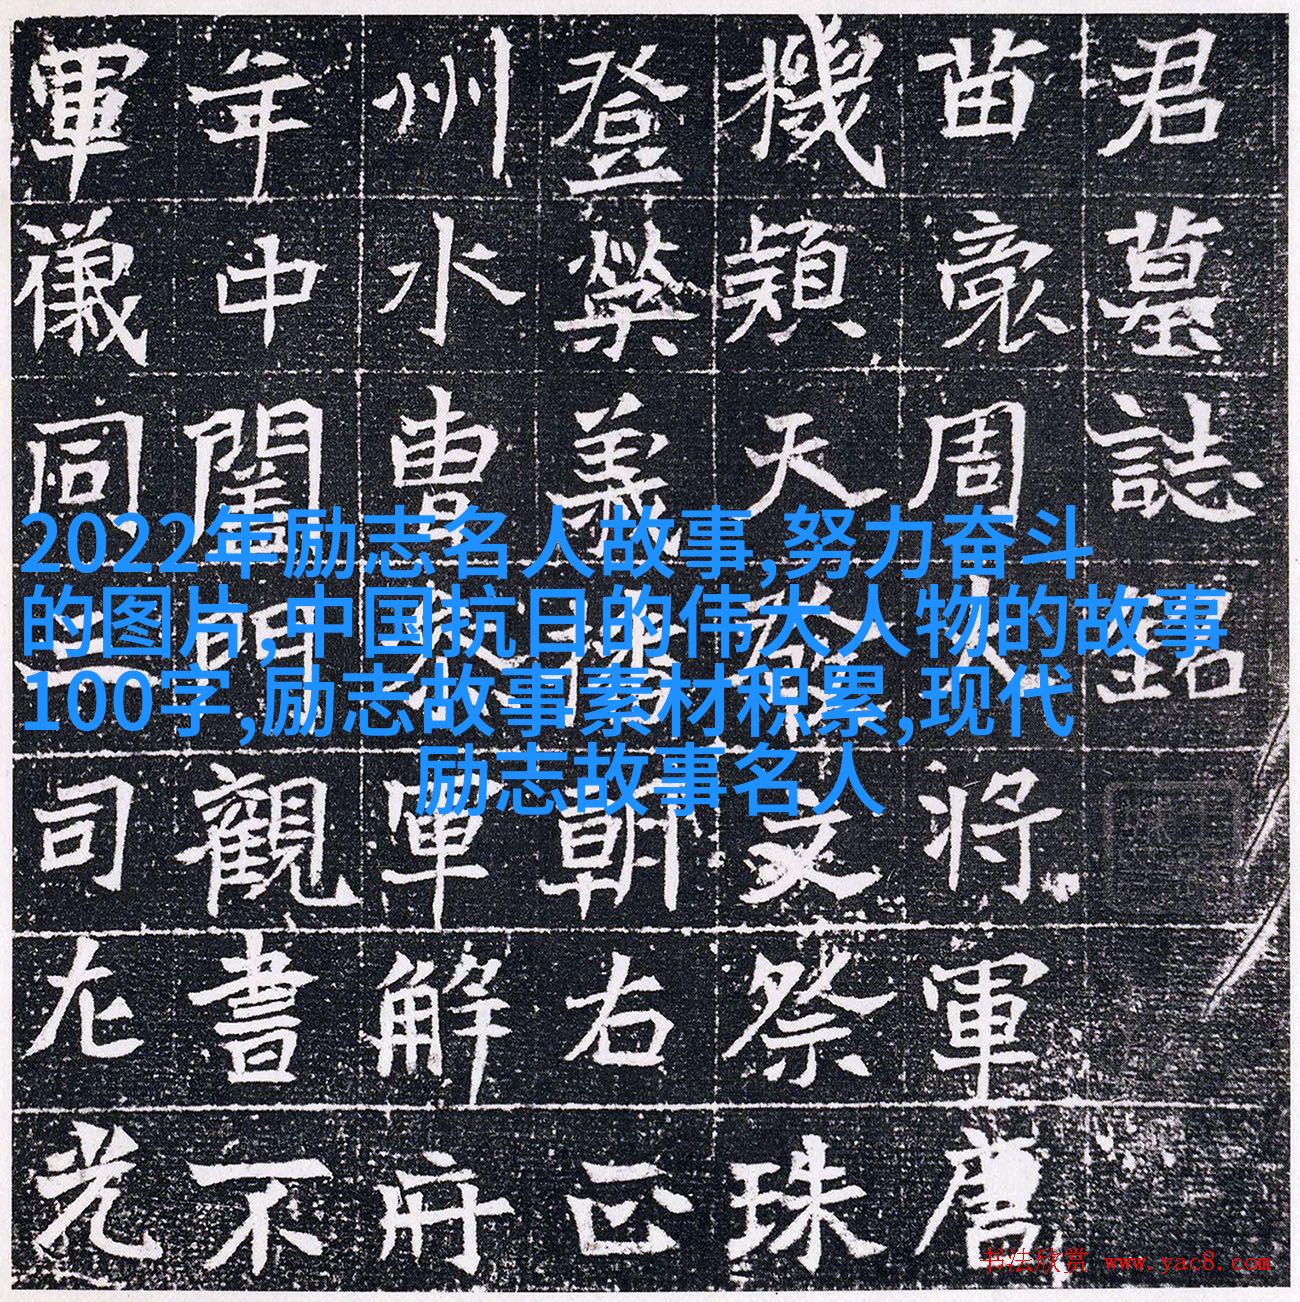 君墓誌銘
苗裔周大將軍唐
機穎天發文祭珠
登榮義朝右正
州水曹軍解府
年中閨門觀書不
軍儀同三司左光
2022年励志名人故事,努力奋斗
的图片,中国抗日的伟大人物的故事
100字,励志故事素材积累,现代
励志故事名人
书法欣赏 www.yac8.com